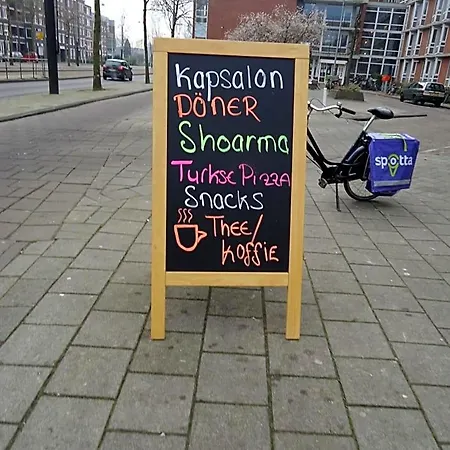 Kapsalon
DÖNER
Shoarma
Turkse Pizza
Snacks
Thee/
Koffie
spotta